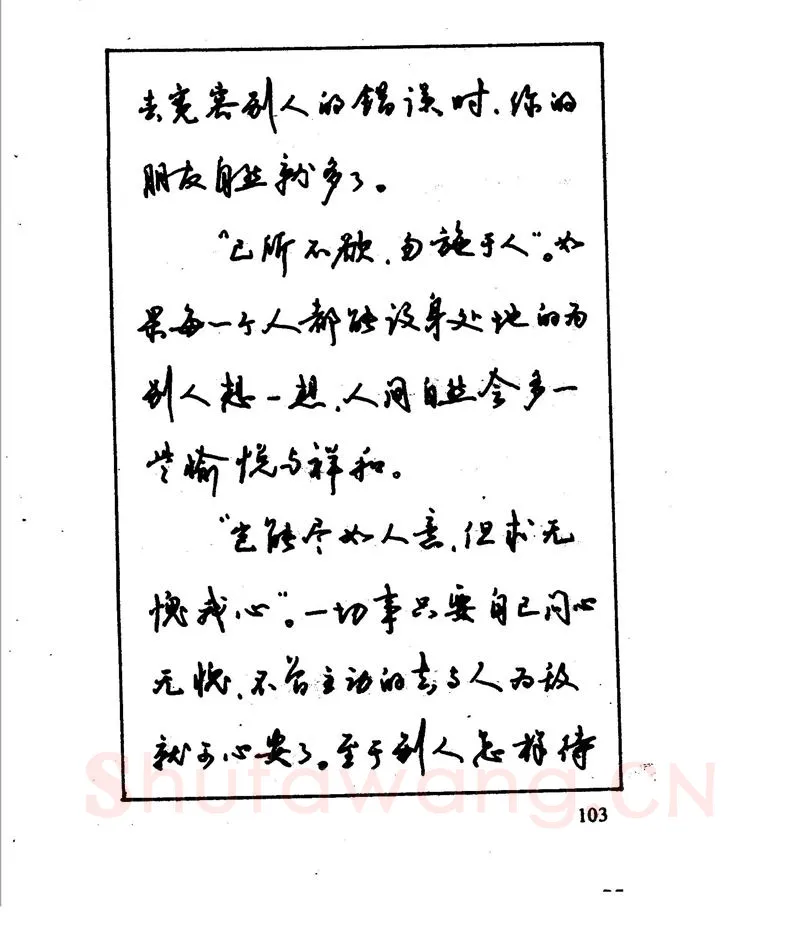 去宽容别人的错误时，你的
朋友自然就多了。
“己所不欲，勿施于人”。如
果每一个人都能设身处地的为
别人想一想，人间自然会多一
些愉悦与祥和。
“岂能尽如人意，但求无
愧我心”。一切事只要自己问心
无愧，不曾主动的去与人为敌
就可心安了。至于别人怎样待
Shufawang.CN
103